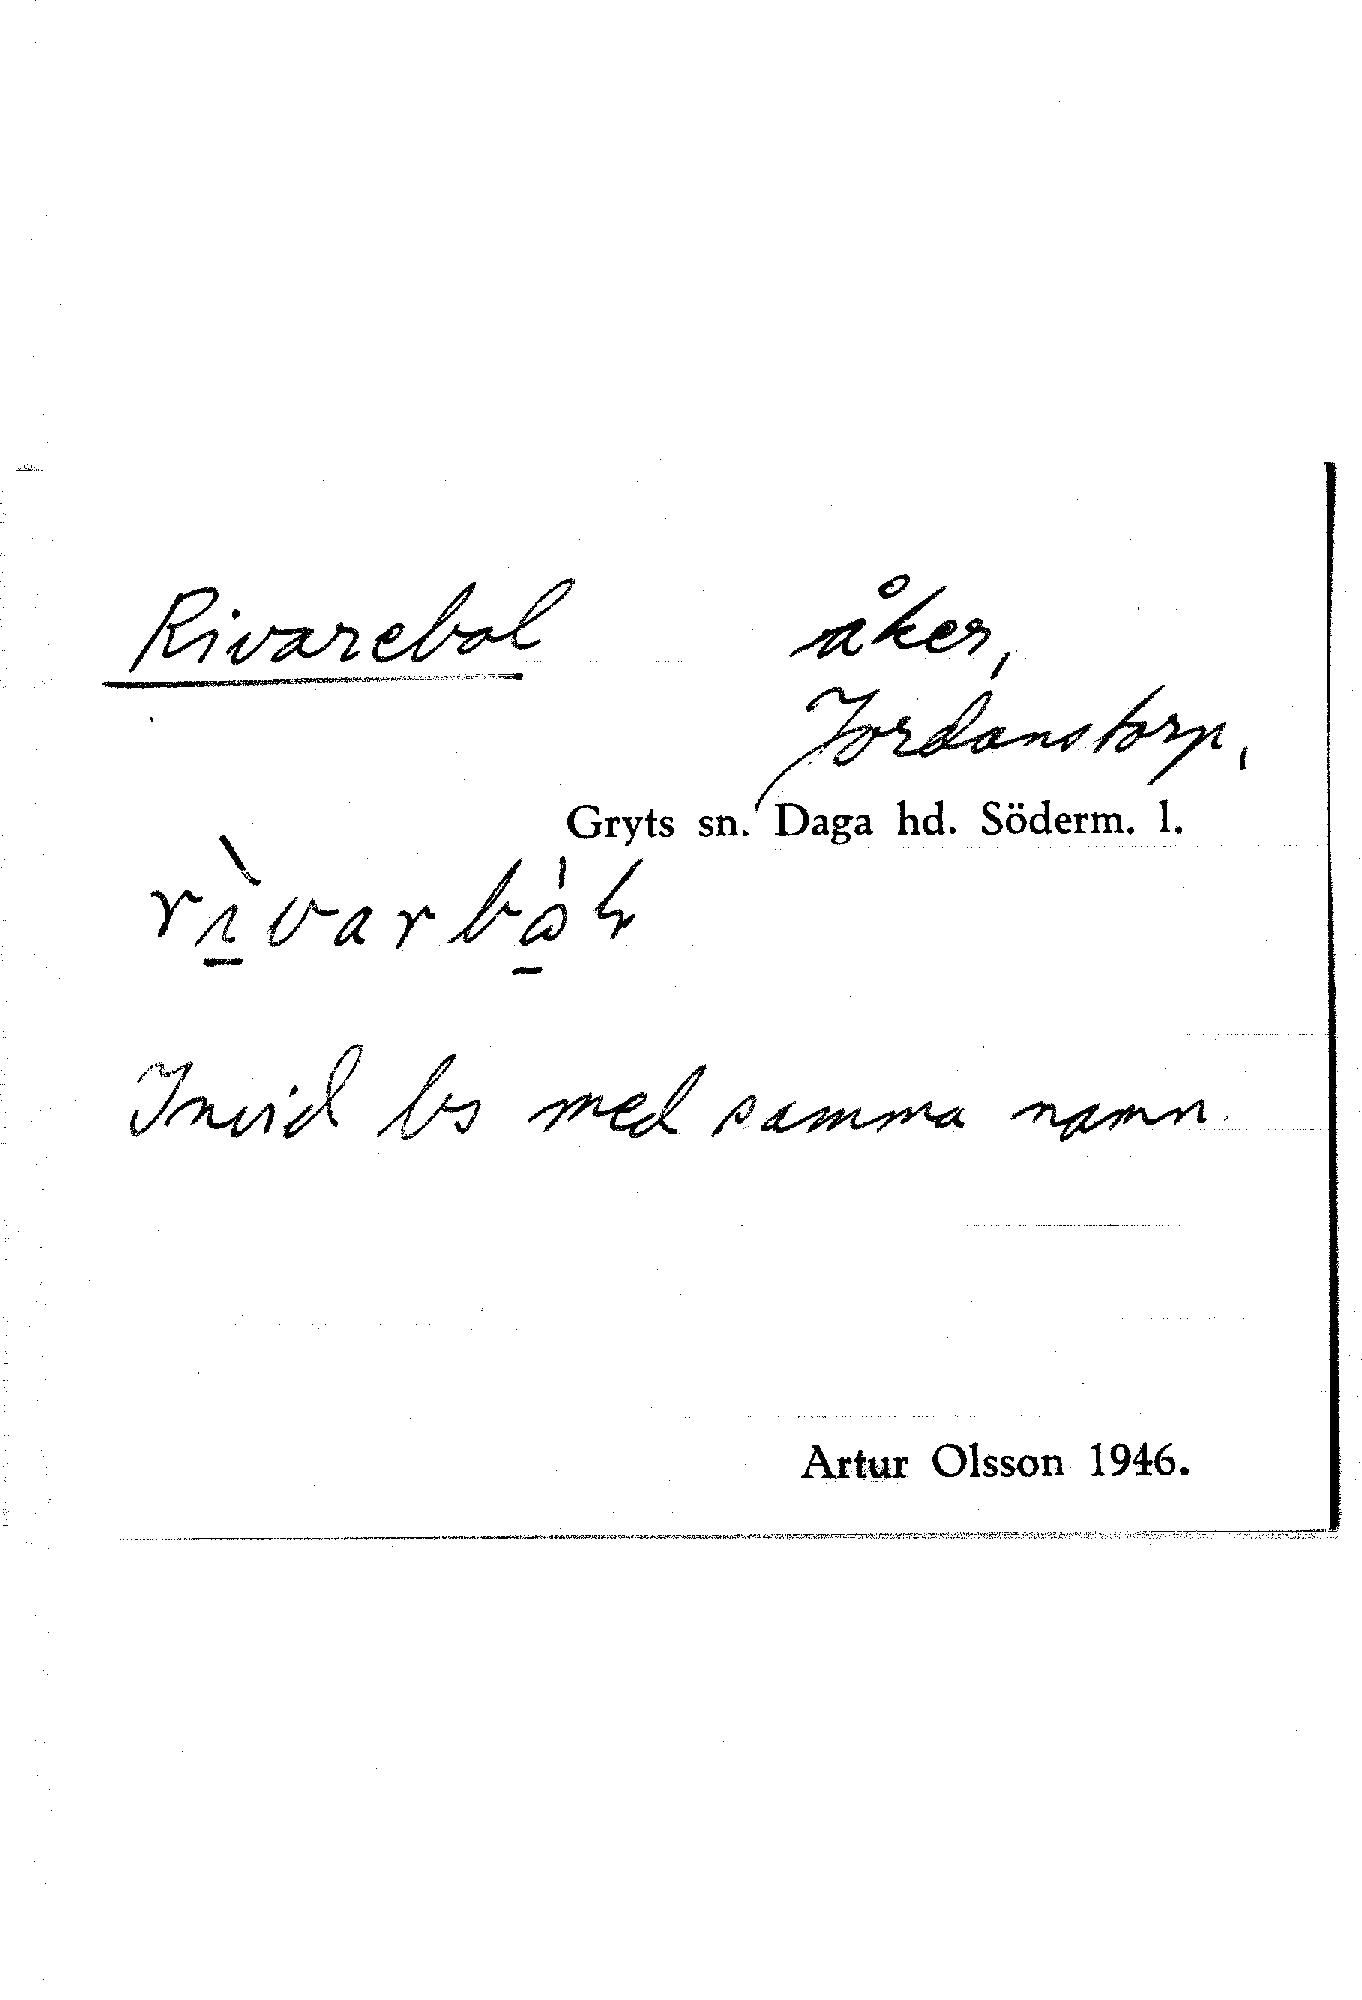 Rivarebol åker,
Jordanstorp,
Gryts sn. Daga hd. Söderm. l.
Invid bs med samma namn.
Artur Olsson 1946.